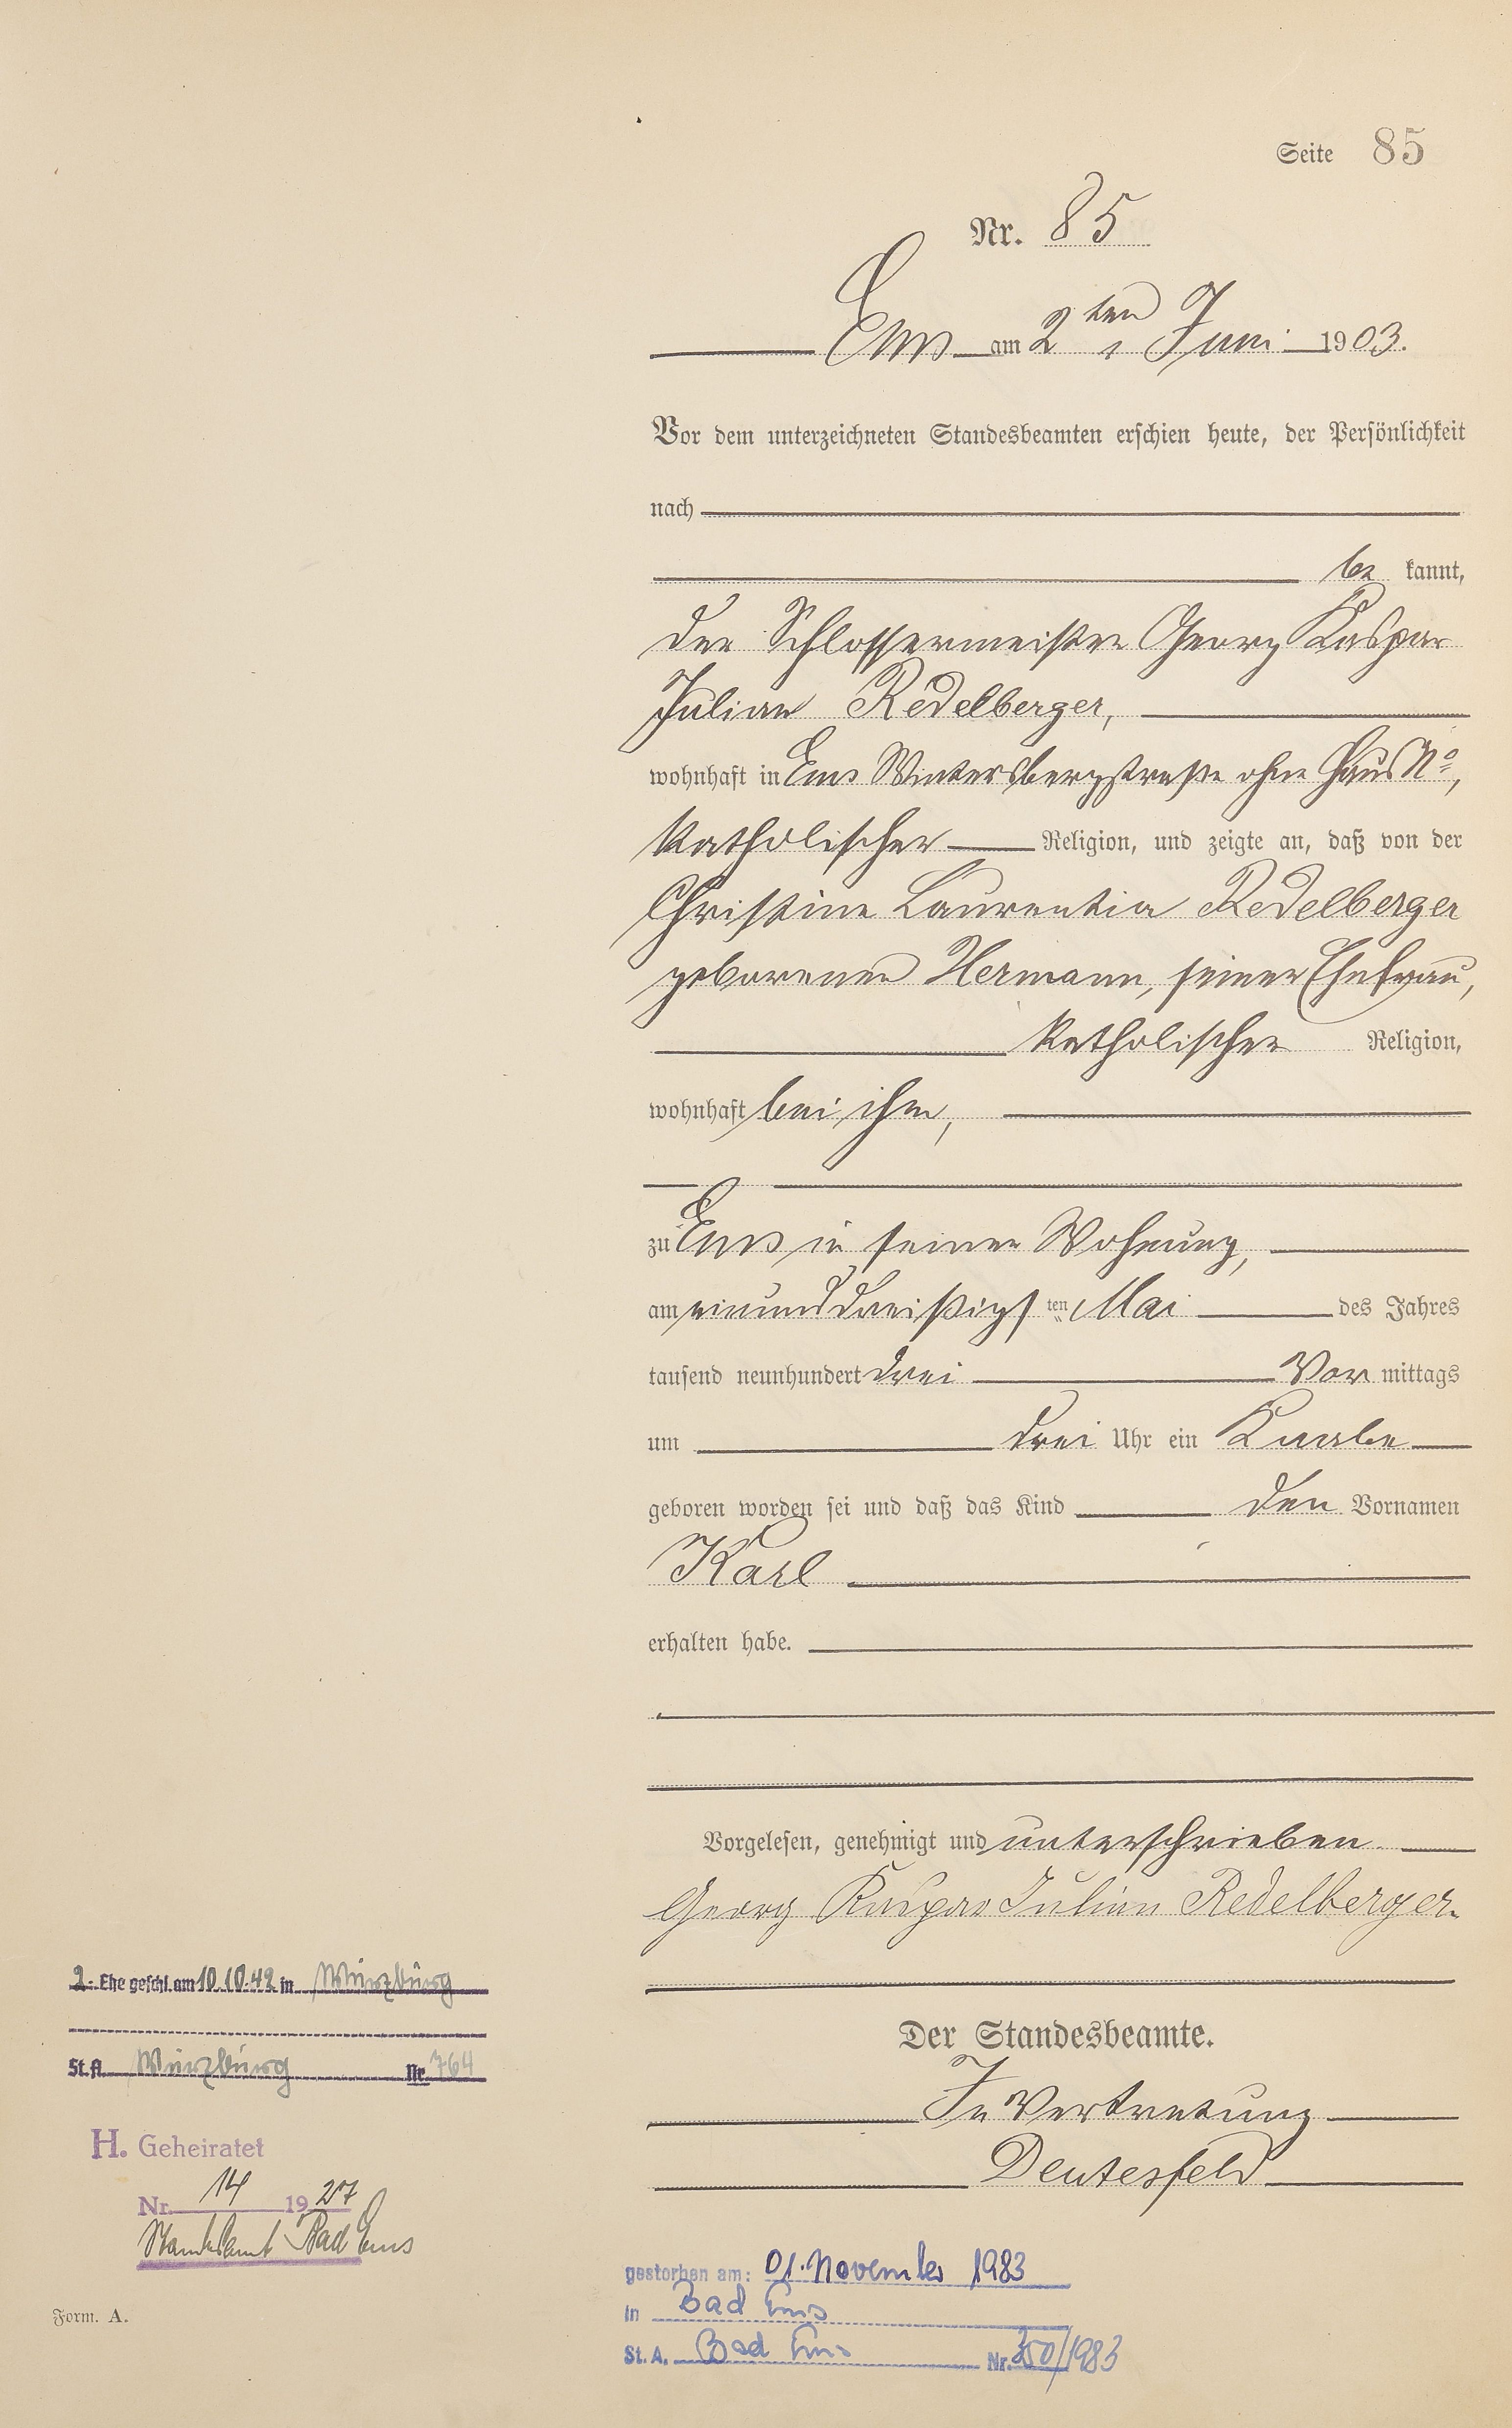 Seite 85
Nr. 85
Ems am 2ten Juni 1903.
Vor dem unterzeichneten Standesbeamten erschien heute, der Persönlichkeit
nach
be kannt,
der Schlossermeister Georg Kaspar
Julian Redelberger,
wohnhaft in Ems Wintersbergstraße ohne Haus No,
katholischer Religion, und zeigte an, daß von der
Christine Laurentia Redelberger
geborenen Hermann, seiner Ehefrau,
katholischer Religion,
wohnhaft bei ihm,
zu Ems in seiner Wohnung,
am einunddreißigsten Mai des Jahres
tausend neunhundert drei Vor mittags
um drei Uhr ein Knabe
geboren worden sei und daß das Kind den Vornamen
Karl
erhalten habe.
Vorgelesen, genehmigt und unterschrieben.
Georg Kaspar Julian Redelberger.
Der Standesbeamte.
In Vertretung
Deutesfeld
2. Ehe geschl. am 10.10.42 in Würzburg
St. A. Würzburg Nr. 764
H. Geheiratet
Nr. 14 1927
Standesamt Bad Ems
gestorben am: 01. November 1983
in Bad Ems
St. A. Bad Ems Nr. 350/1983
Form. A.